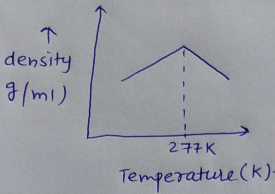 density
g/ml)
277K
Temperature(K).